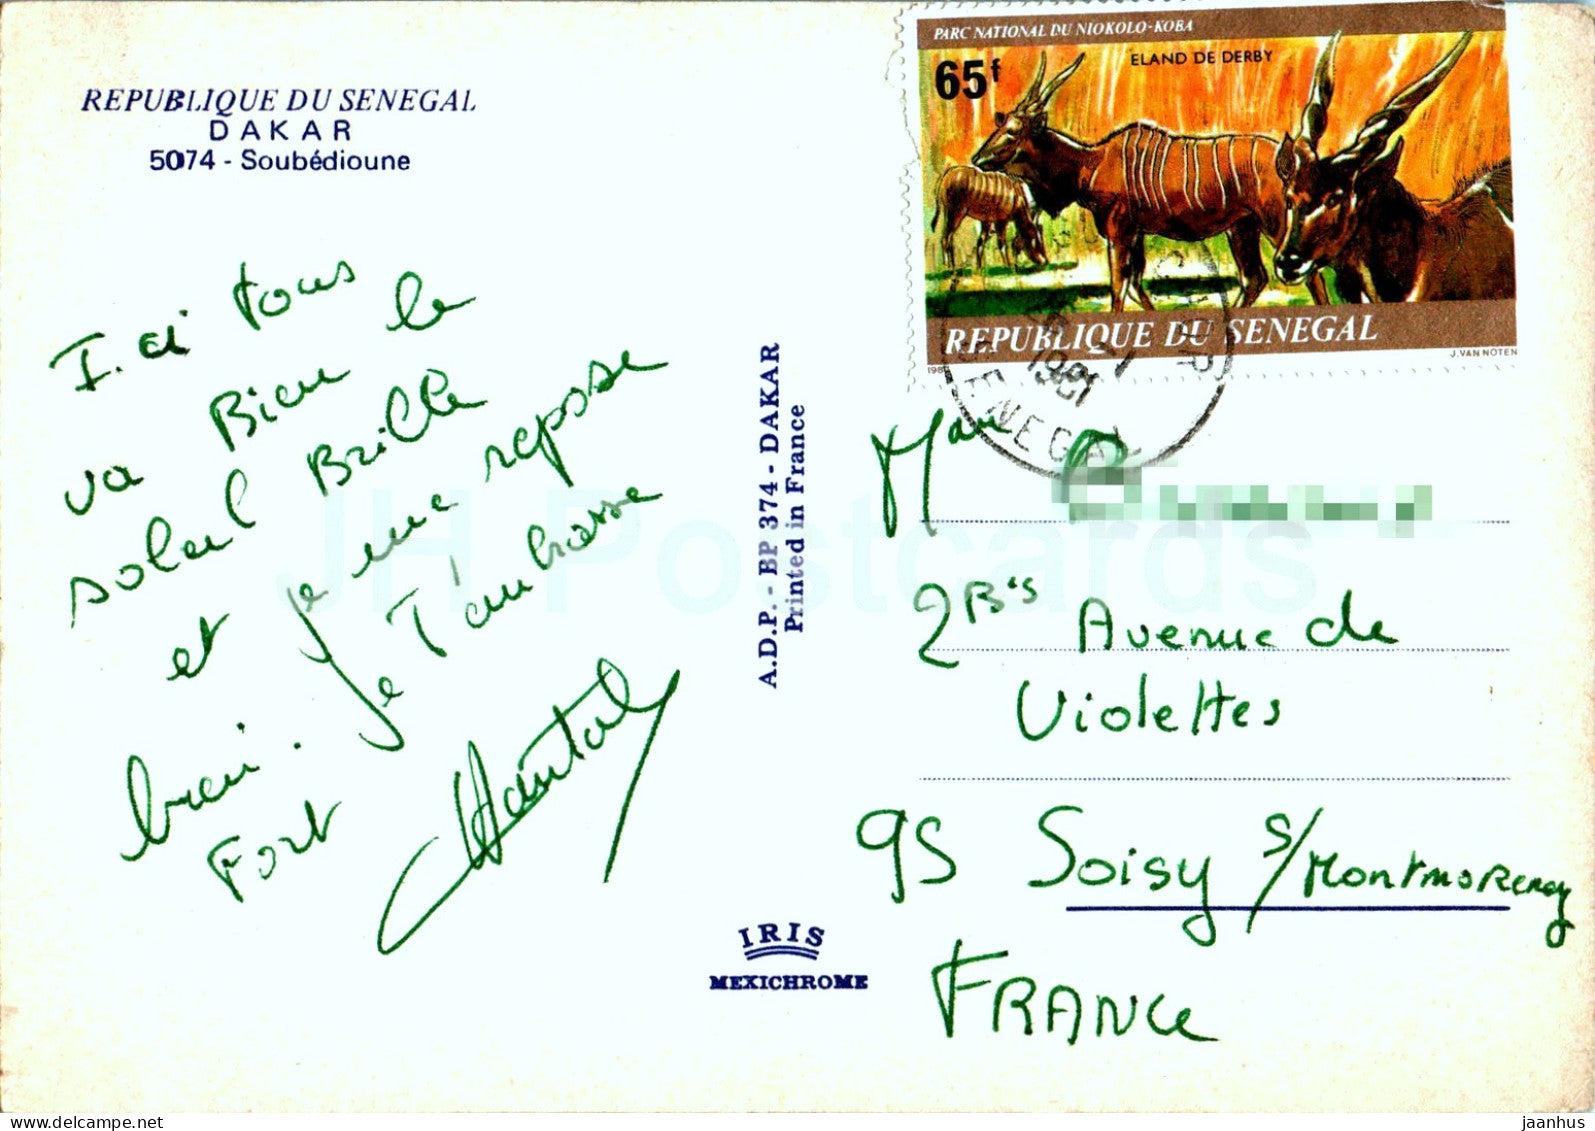 REPUBLIQUE DU SENEGAL
DAKAR
5074 - Soubédioune
I.ci tous
va Bien le
soleil Brille
et je me repose
bien. Je T'embrasse
Fort
Chantal
A.D.P. - BP 374 - DAKAR
Printed in France
IRIS
MEXICHROME
PARC NATIONAL DU NIOKOLO-KOBA
ELAND DE DERBY
65f
REPUBLIQUE DU SENEGAL
J. VAN NOTEN
1981
SENEGAL
2Bis Avenue de
Violettes
95 Soisy s/Montmorency
FRANCE
JH Postcards
delcampe.net
jaanhus